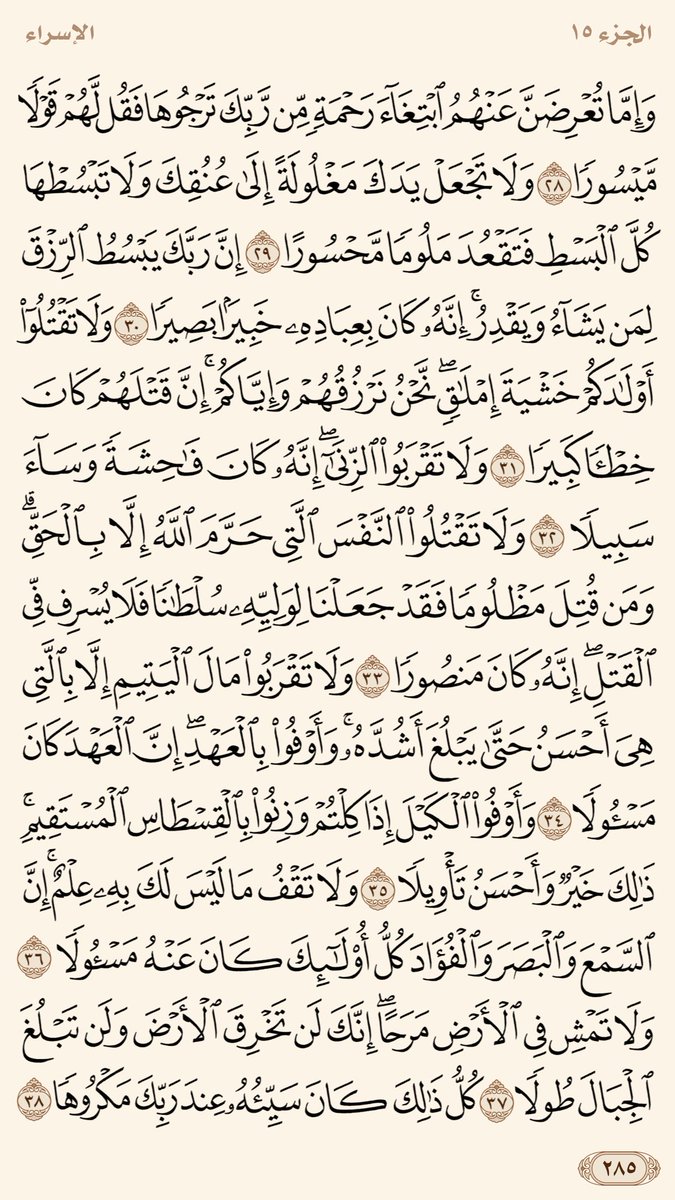 الجزء ١٥
الإسراء
وَإِمَّا تُعْرِضَنَّ عَنْهُمُ ٱبْتِغَآءَ رَحْمَةٍ مِّن رَّبِّكَ تَرْجُوهَا فَقُل لَّهُمْ قَوْلًا
مَّيْسُورًا ٢٨ وَلَا تَجْعَلْ يَدَكَ مَغْلُولَةً إِلَىٰ عُنُقِكَ وَلَا تَبْسُطْهَا
كُلَّ ٱلْبَسْطِ فَتَقْعُدَ مَلُومًا مَّحْسُورًا ٢٩ إِنَّ رَبَّكَ يَبْسُطُ ٱلرِّزْقَ
لِمَن يَشَآءُ وَيَقْدِرُ ۚ إِنَّهُۥ كَانَ بِعِبَادِهِۦ خَبِيرًۢا بَصِيرًا ٣٠ وَلَا تَقْتُلُوٓا۟
أَوْلَـٰدَكُمْ خَشْيَةَ إِمْلَـٰقٍ ۖ نَّحْنُ نَرْزُقُهُمْ وَإِيَّاكُمْ ۚ إِنَّ قَتْلَهُمْ كَانَ
خِطْـًٔا كَبِيرًا ٣١ وَلَا تَقْرَبُوا۟ ٱلزِّنَىٰٓ ۖ إِنَّهُۥ كَانَ فَـٰحِشَةً وَسَآءَ
سَبِيلًا ٣٢ وَلَا تَقْتُلُوا۟ ٱلنَّفْسَ ٱلَّتِى حَرَّمَ ٱللَّهُ إِلَّا بِٱلْحَقِّ ۗ
وَمَن قُتِلَ مَظْلُومًا فَقَدْ جَعَلْنَا لِوَلِيِّهِۦ سُلْطَـٰنًا فَلَا يُسْرِف فِّى
ٱلْقَتْلِ ۖ إِنَّهُۥ كَانَ مَنصُورًا ٣٣ وَلَا تَقْرَبُوا۟ مَالَ ٱلْيَتِيمِ إِلَّا بِٱلَّتِى
هِىَ أَحْسَنُ حَتَّىٰ يَبْلُغَ أَشُدَّهُۥ ۚ وَأَوْفُوا۟ بِٱلْعَهْدِ ۖ إِنَّ ٱلْعَهْدَ كَانَ
مَسْـُٔولًا ٣٤ وَأَوْفُوا۟ ٱلْكَيْلَ إِذَا كِلْتُمْ وَزِنُوا۟ بِٱلْقِسْطَاسِ ٱلْمُسْتَقِيمِ ۚ
ذَٰلِكَ خَيْرٌ وَأَحْسَنُ تَأْوِيلًا ٣٥ وَلَا تَقْفُ مَا لَيْسَ لَكَ بِهِۦ عِلْمٌ ۚ إِنَّ
ٱلسَّمْعَ وَٱلْبَصَرَ وَٱلْفُؤَادَ كُلُّ أُو۟لَـٰٓئِكَ كَانَ عَنْهُ مَسْـُٔولًا ٣٦
وَلَا تَمْشِ فِى ٱلْأَرْضِ مَرَحًا ۖ إِنَّكَ لَن تَخْرِقَ ٱلْأَرْضَ وَلَن تَبْلُغَ
ٱلْجِبَالَ طُولًا ٣٧ كُلُّ ذَٰلِكَ كَانَ سَيِّئُهُۥ عِندَ رَبِّكَ مَكْرُوهًا ٣٨
٢٨٥